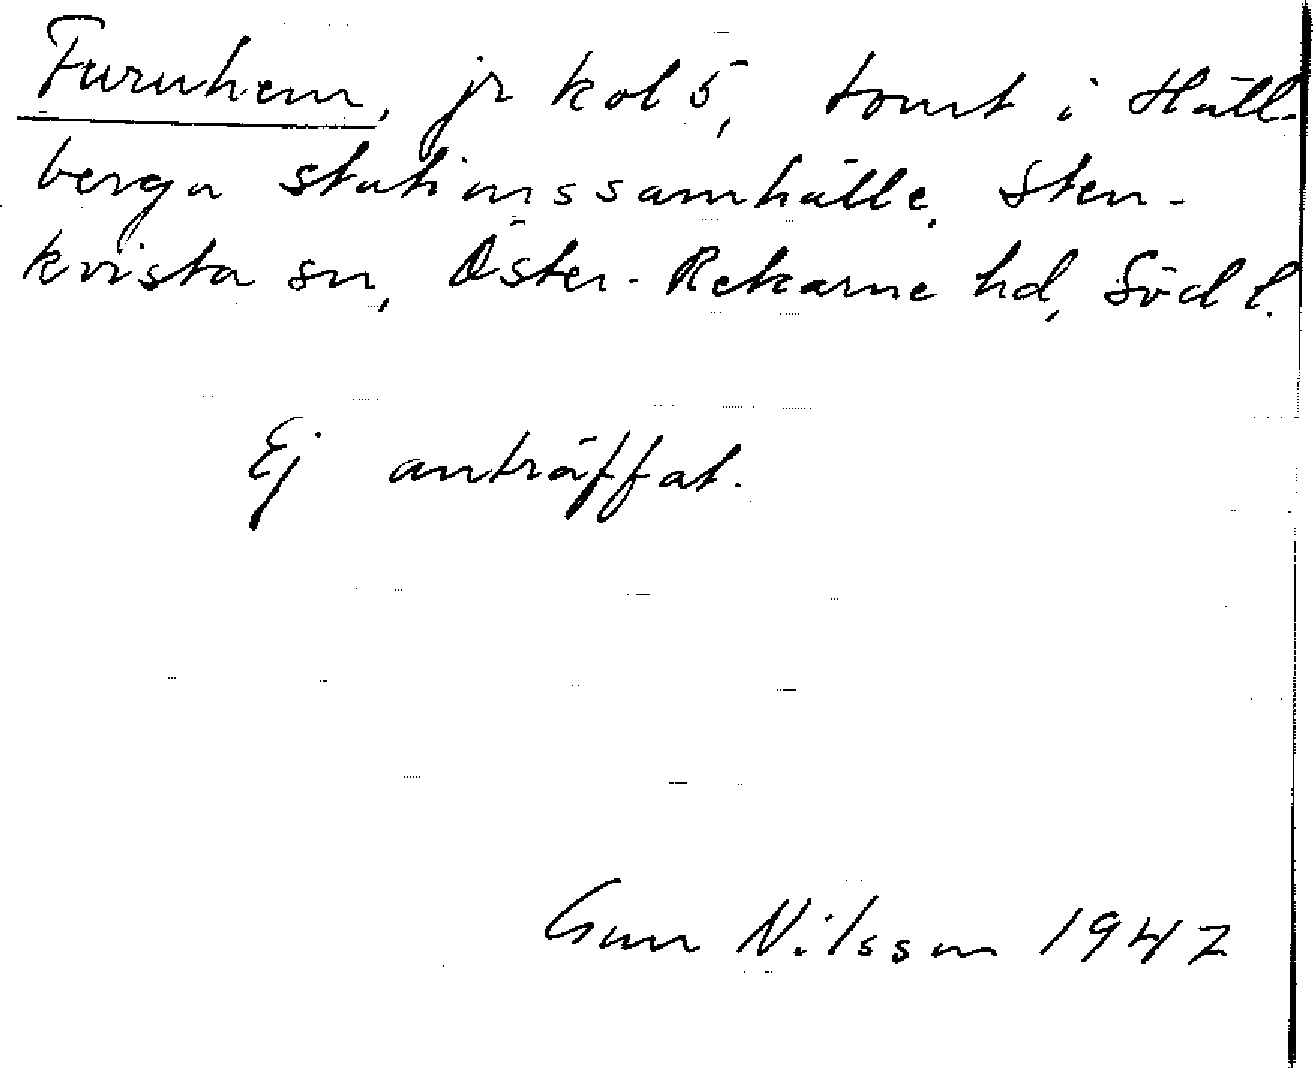 Furuhem, jr kol 5, tomt i Häll-
berga stationssamhälle, Sten-
kvista sn, Öster-Rekarne hd, Söd l.
Ej anträffat.
Gun Nilsson 1947